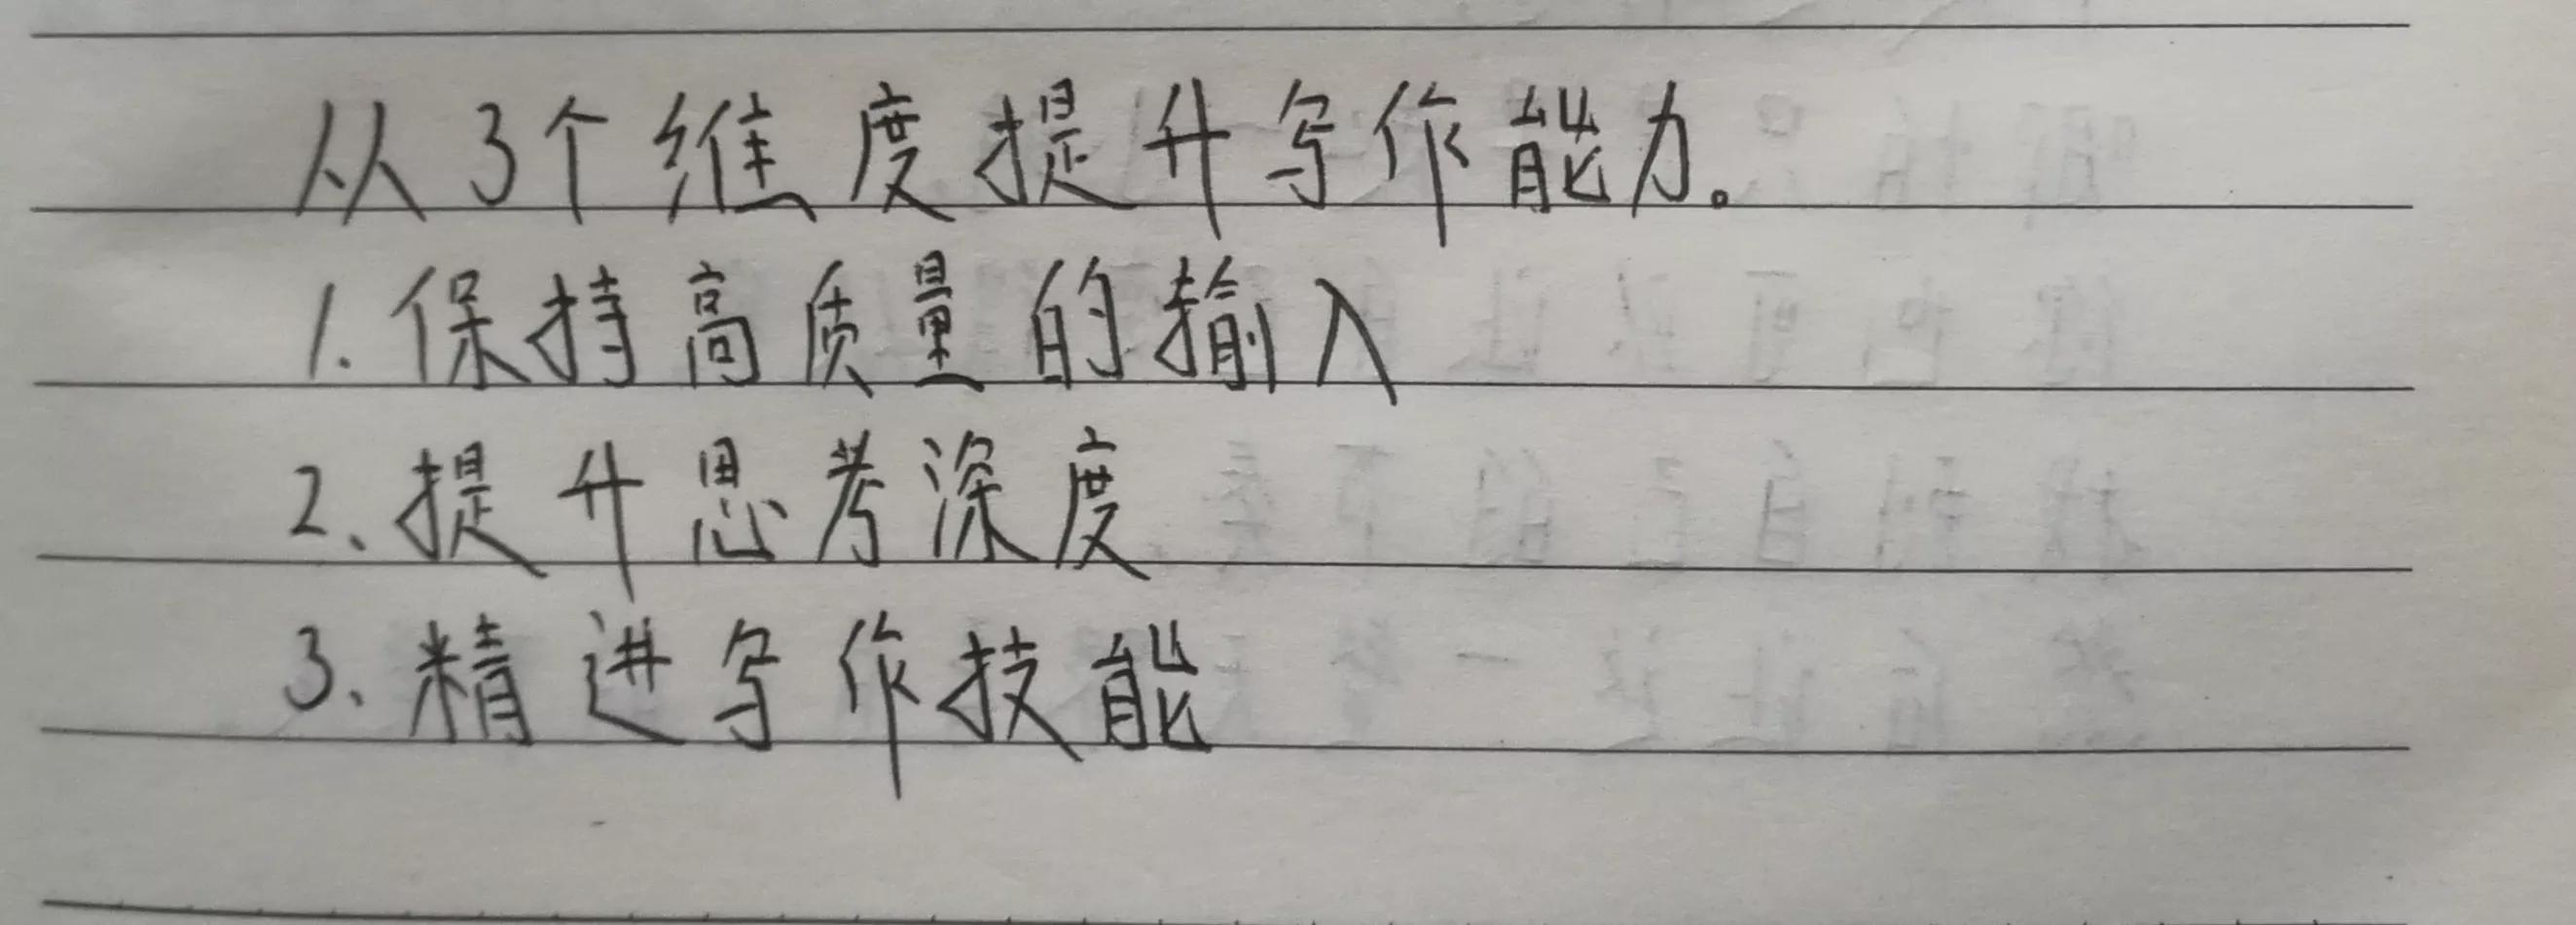 从3个维度提升写作能力。
1.保持高质量的输入
2、提升思考深度
3、精进写作技能